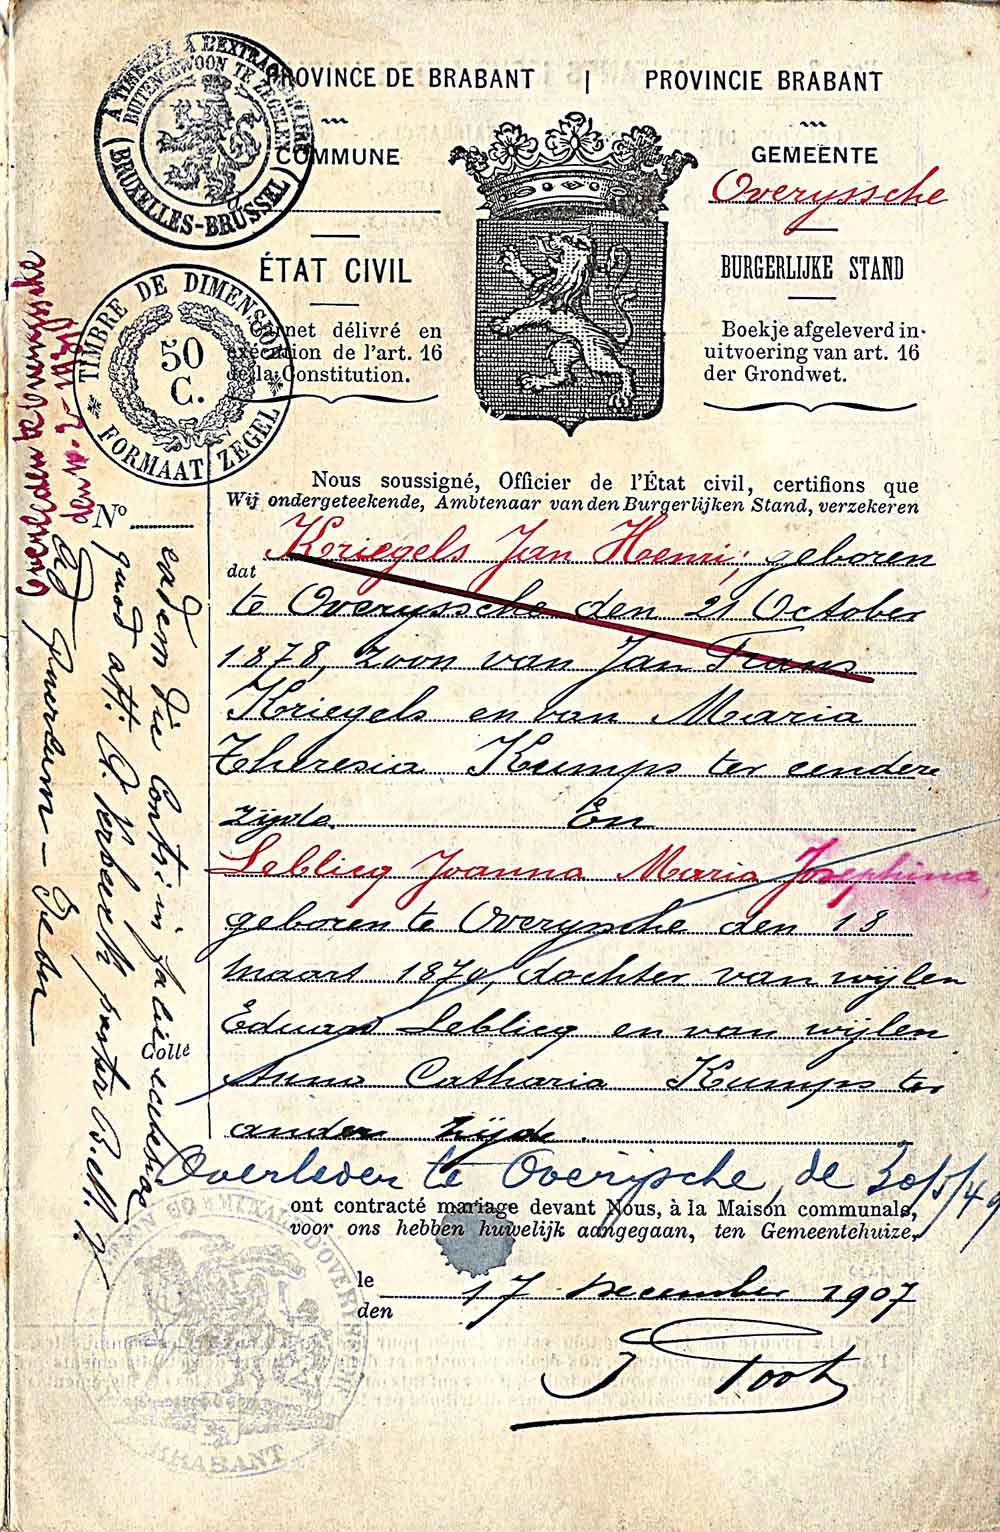 PROVINCE DE BRABANT | PROVINCIE BRABANT
À TIMBRER À L'EXTRAORDINAIRE
BUITENGEWOON TE ZEGELEN
(BRUXELLES-BRUSSEL)
COMMUNE
GEMEENTE
Overyssche
ÉTAT CIVIL
BURGERLIJKE STAND
TIMBRE DE DIMENSION
50
C.
FORMAAT ZEGEL
Carnet délivré en
exécution de l'art. 16
de la Constitution.
Boekje afgeleverd in
uitvoering van art. 16
der Grondwet.
Nous soussigné, Officier de l'État civil, certifions que
Wij ondergeteekende, Ambtenaar van den Burgerlijken Stand, verzekeren
No
dat
Kriegels Jan Henri, geboren
te Overyssche den 21 October
1878, zoon van Jan Frans
Kriegels en van Maria
Theresia Kumps ter eendere
zijde. En
Leblicq Joanna Maria Josephina,
geboren te Overyssche den 18
maart 1879, dochter van wijlen
Eduard Leblicq en van wijlen
Anna Catharia Kumps ter
ander zijde.
Overleden te Overijsche, de 30/5/49
ont contracté mariage devant Nous, à la Maison communale,
voor ons hebben huwelijk aangegaan, ten Gemeentehuize,
le
den
17 December 1907
Overleden te Overyssche
den
eadem die
quod att.
pastor
Colle
BRABANT